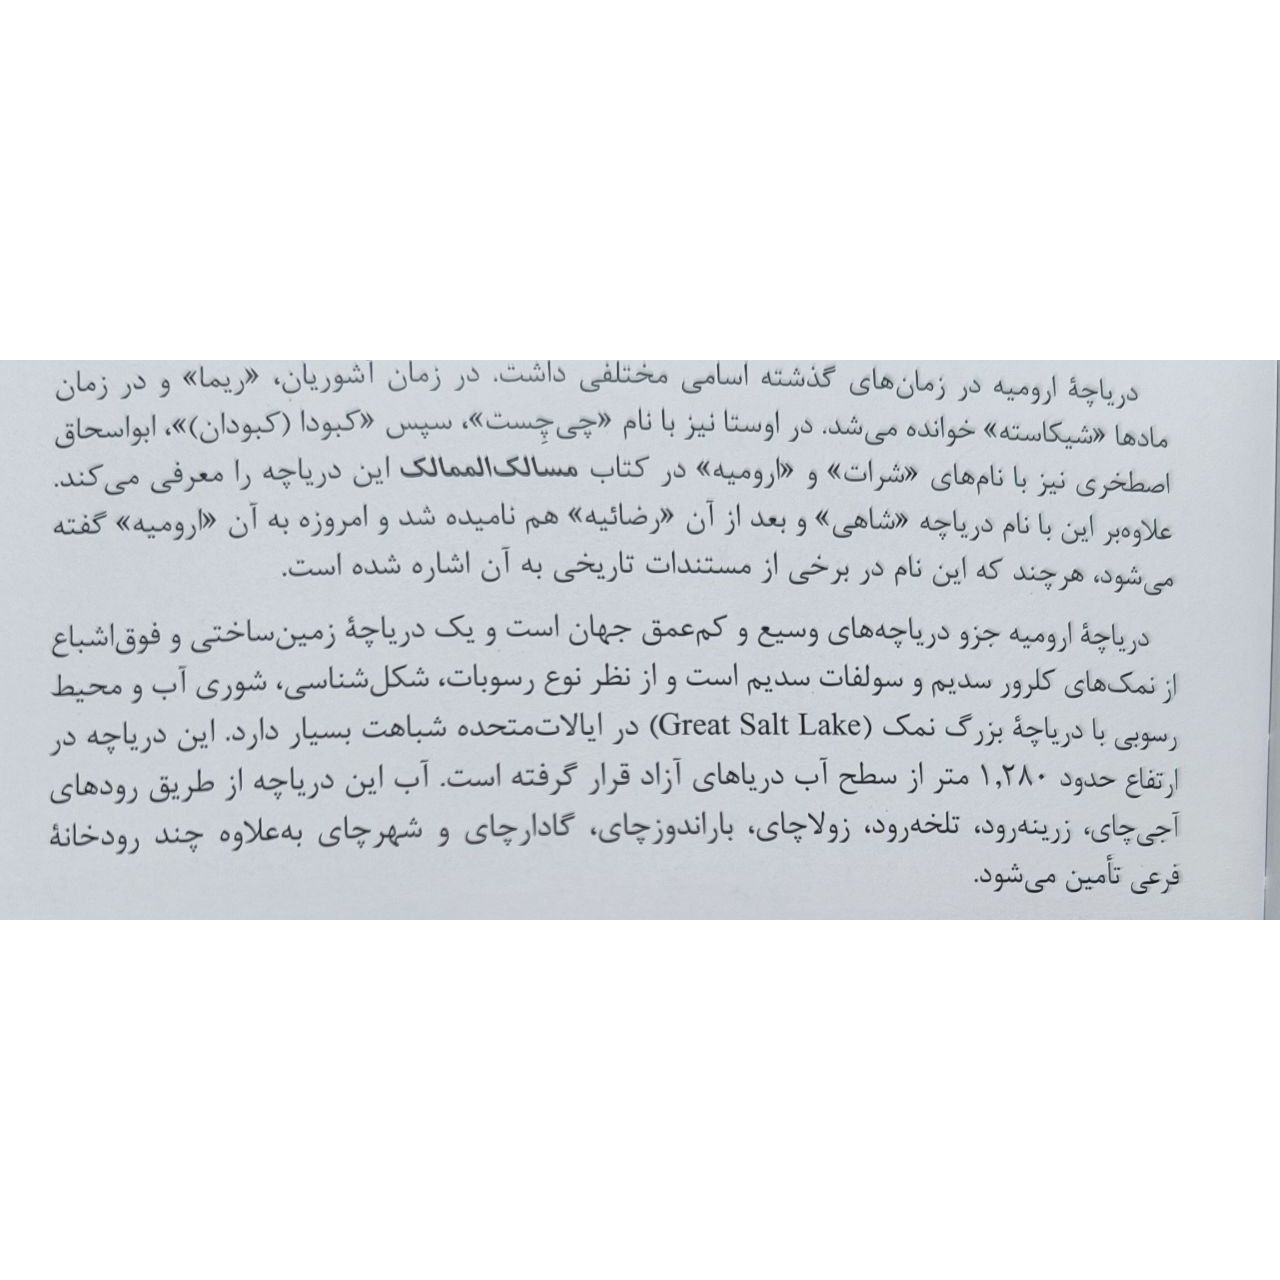 دریاچهٔ ارومیه در زمان‌های گذشته اسامی مختلفی داشت. در زمان آشوریان، «ریما» و در زمان
مادها «شیکاسته» خوانده می‌شد. در اوستا نیز با نام «چی‌چِست»، سپس «کبودا (کبودان)»، ابواسحاق
اصطخری نیز با نام‌های «شرات» و «ارومیه» در کتاب مسالک‌الممالک این دریاچه را معرفی می‌کند.
علاوه‌بر این با نام دریاچه «شاهی» و بعد از آن «رضائیه» هم نامیده شد و امروزه به آن «ارومیه» گفته
می‌شود، هرچند که این نام در برخی از مستندات تاریخی به آن اشاره شده است.
دریاچهٔ ارومیه جزو دریاچه‌های وسیع و کم‌عمق جهان است و یک دریاچهٔ زمین‌ساختی و فوق‌اشباع
از نمک‌های کلرور سدیم و سولفات سدیم است و از نظر نوع رسوبات، شکل‌شناسی، شوری آب و محیط
رسوبی با دریاچهٔ بزرگ نمک (Great Salt Lake) در ایالات‌متحده شباهت بسیار دارد. این دریاچه در
ارتفاع حدود ۱,۲۸۰ متر از سطح آب دریاهای آزاد قرار گرفته است. آب این دریاچه از طریق رودهای
آجی‌چای، زرینه‌رود، تلخه‌رود، زولاچای، باراندوزچای، گادارچای و شهرچای به‌علاوه چند رودخانهٔ
فرعی تأمین می‌شود.